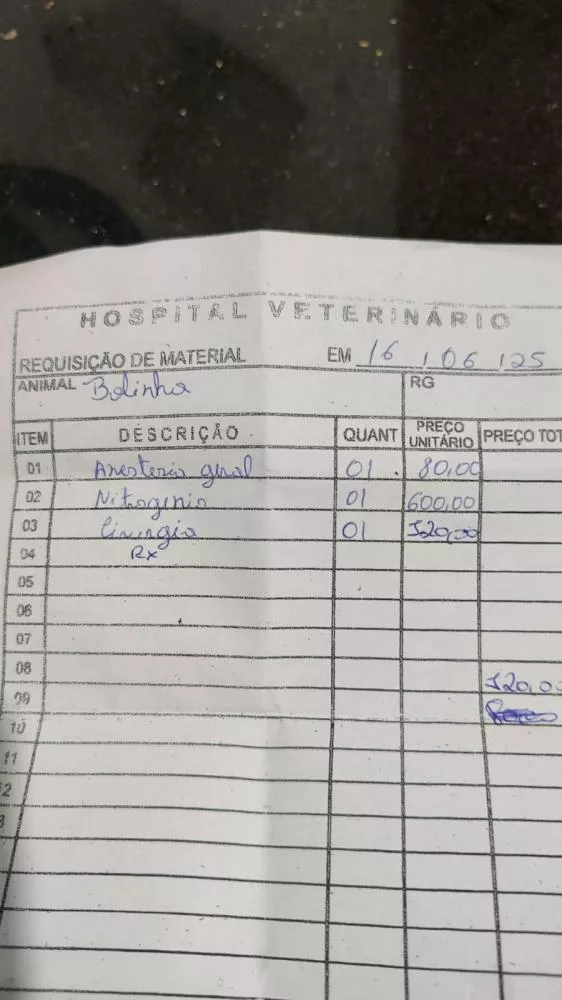 HOSPITAL VETERINÁRIO
REQUISIÇÃO DE MATERIAL EM 16 / 06 / 25
ANIMAL Bolinha RG
ITEM DESCRIÇÃO QUANT PREÇO UNITÁRIO PREÇO TOT
01 Anestesia geral 01 80,00
02 Nitrogenio 01 600,00
03 Cirurgia 01 520,00
04 RX
05
06
07
08 520,0
09
10
11
2
3